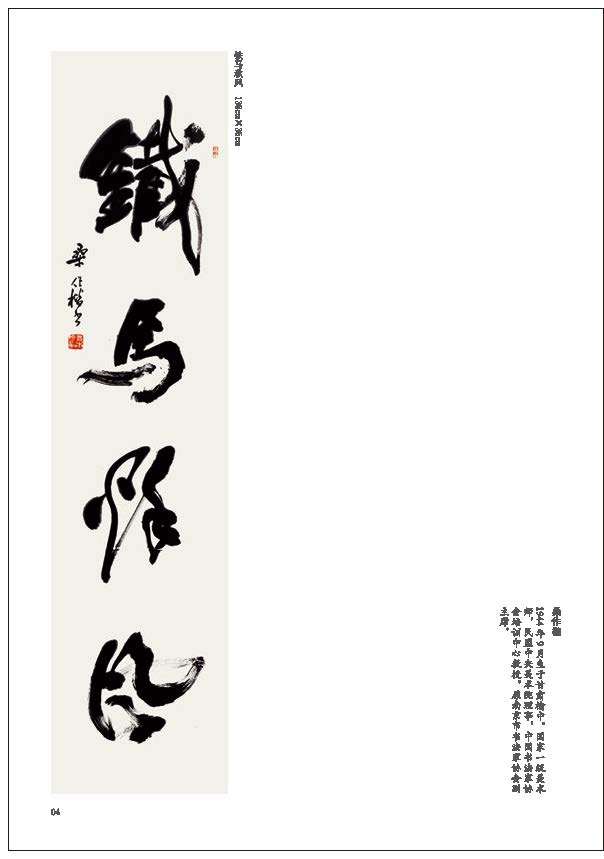 鐵馬秋风
桑作楷书
铁马秋风 138cm×35cm
桑作楷
1944年9月生于甘肃榆中。国家一级美术
师，民盟中央美术院理事，中国书法家协
会培训中心教授，原南京市书法家协会副
主席。
04